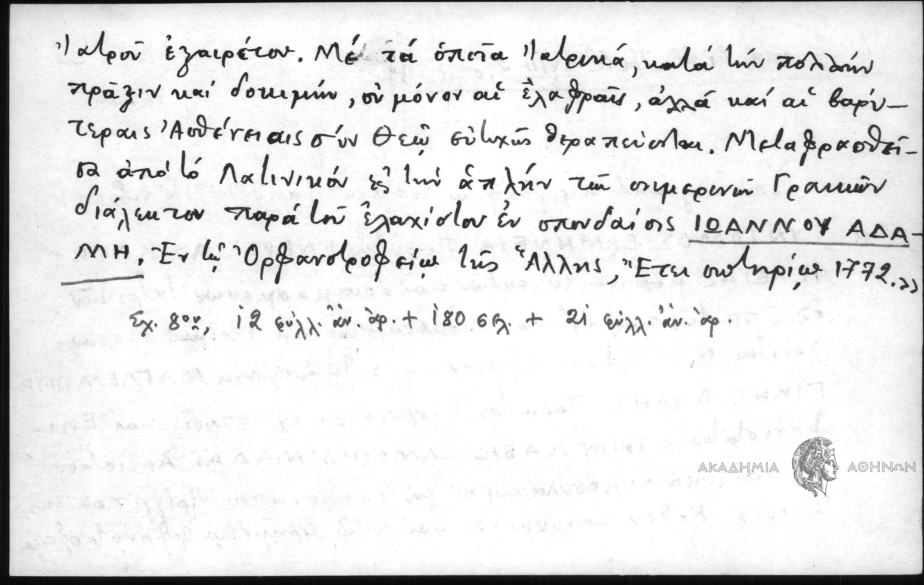 Ἰατροῦ ἐξαιρέτου. Μέ τά ὁποῖα Ἰατρικά, κατά τήν πολλήν
πρᾶξιν καί δοκιμήν, οὐ μόνον αἱ ἐλαφραῖς, ἀλλά καί αἱ βαρύ-
τεραις Ἀσθένειαις σύν Θεῷ εὐτυχῶς θεραπεύονται. Μεταφρασθεῖ-
σα ἀπό τό Λατινικόν εἰς τήν ἁπλῆν τῶν σιμερινῶν Γραικῶν
διάλεκτον παρά τοῦ ἐλαχίστου ἐν σπουδαίοις ΙΩΑΝΝΟΥ ΑΔΑ-
ΜΗ. Ἐν τῷ Ὀρφανοτροφείῳ τῆς Ἄλλης, Ἔτει σωτηρίῳ 1772.»
Σχ. 8ον, 12 φύλλ. ἄν. ἀρ. + 180 σελ. + 21 φύλλ. ἄν. ἀρ.
ΑΚΑΔΗΜΙΑ ΑΘΗΝΩΝ